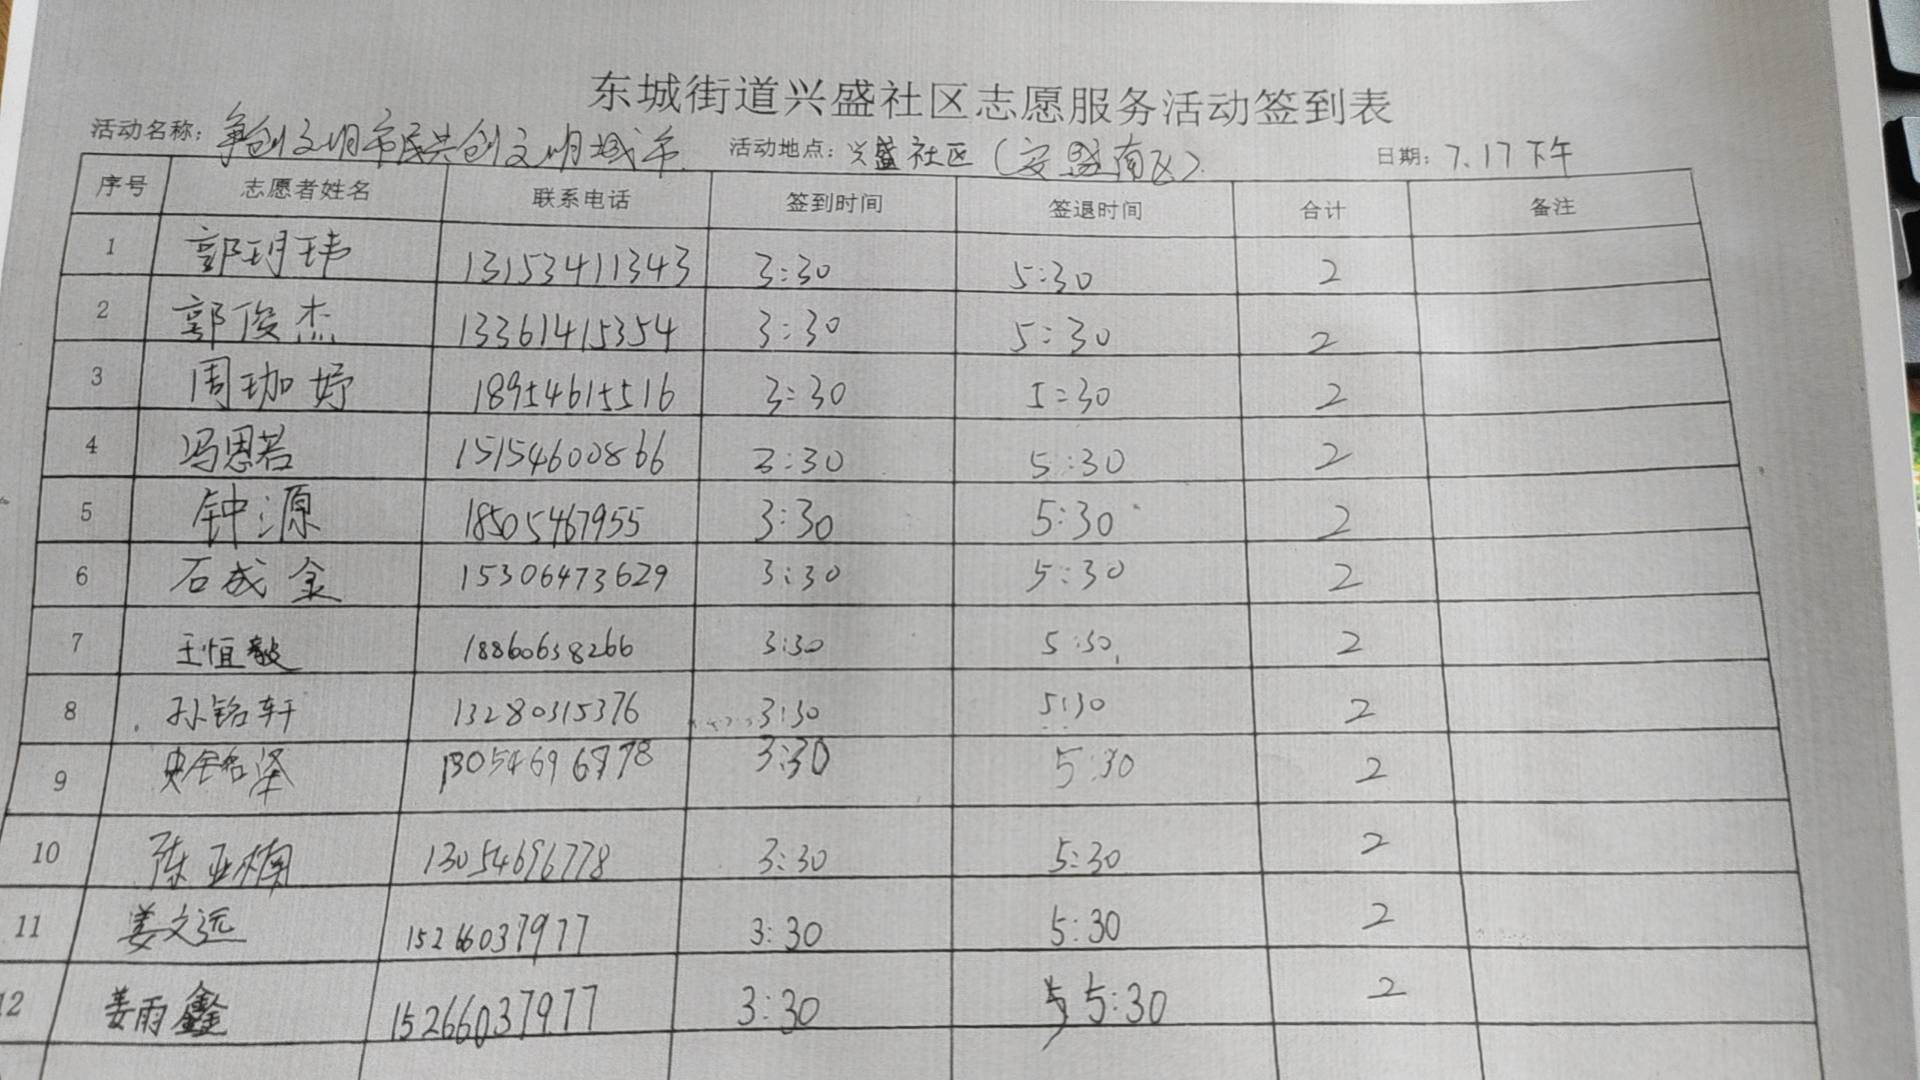 东城街道兴盛社区志愿服务活动签到表
活动名称：争创文明市民共创文明城市 活动地点：兴盛社区（安盛南区） 日期：7.17下午
序号 志愿者姓名 联系电话 签到时间 签退时间 合计 备注
1 郭玥玮 13153411343 3:30 5:30 2
2 郭俊杰 13361415354 3:30 5:30 2
3 周珈妤 18954615516 3:30 5:30 2
4 冯恩若 15154600866 3:30 5:30 2
5 钟源 18505467955 3:30 5:30 2
6 石成金 15306473629 3:30 5:30 2
7 王恒毅 18860638266 3:30 5:30 2
8 孙铭轩 13280315376 3:30 5:30 2
9 3:30 5:30 2
10 陈亚楠 13054696778 3:30 5:30 2
11 姜文远 15266037977 3:30 5:30 2
12 姜雨鑫 15266037977 3:30 5:30 2